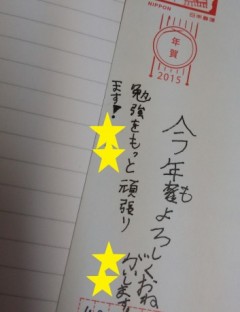 NIPPON
日本郵便
年賀
2015
今年もよろしくおね
がいします
勉強をもっと頑張り
ます!